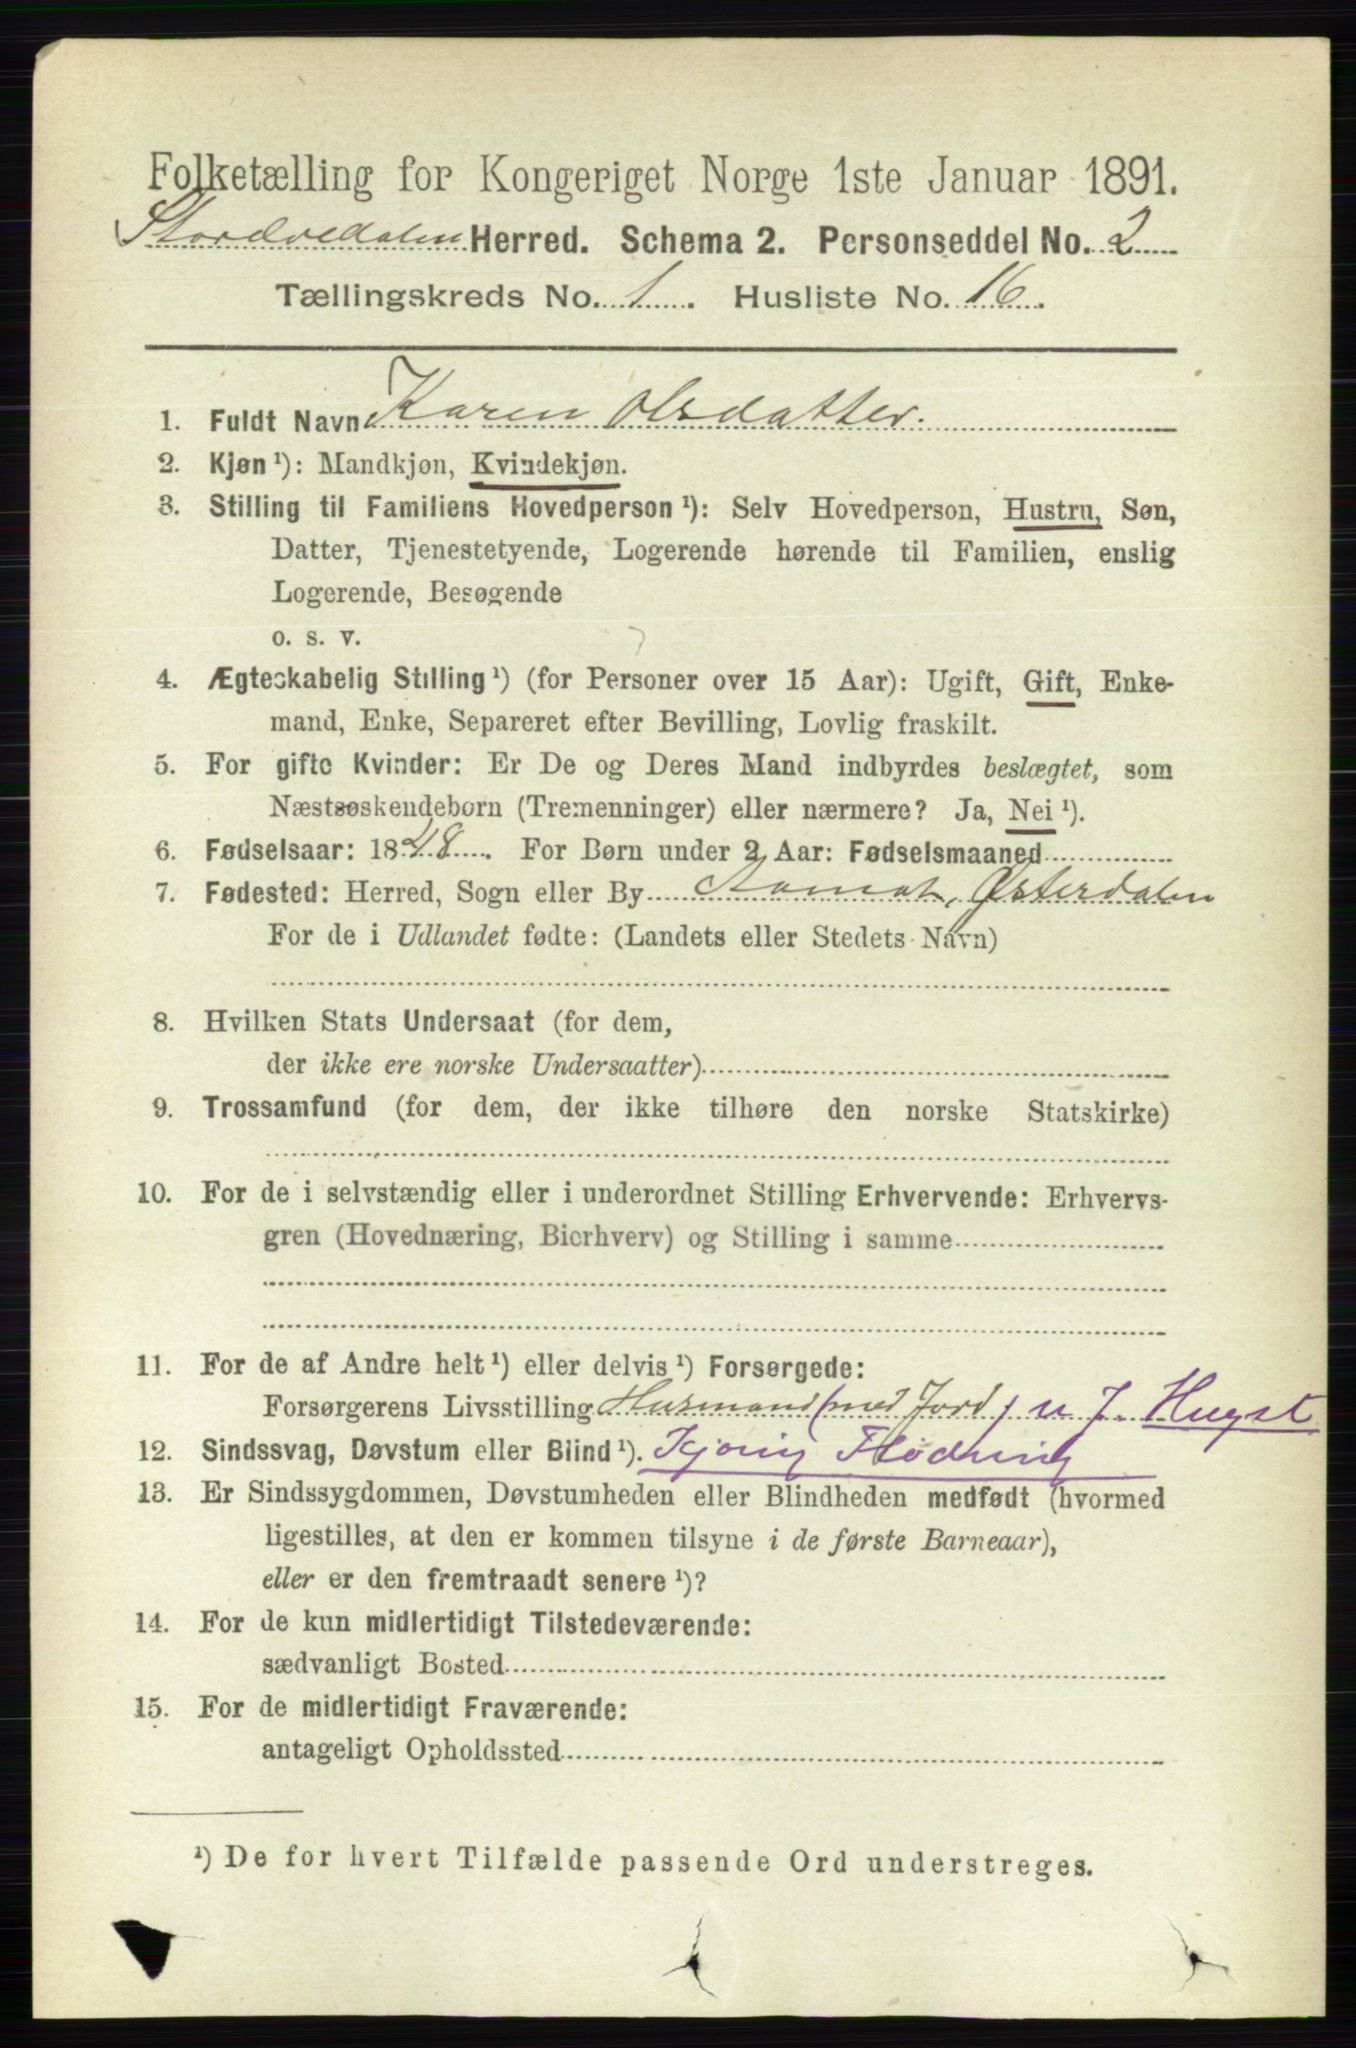 Folketælling for Kongeriget Norge 1ste Januar 1891.
Storelvedalen Herred. Schema 2. Personseddel No. 2
Tællingskreds No. 1. Husliste No. 16.
1. Fuldt Navn Karen Olsdatter.
2. Kjøn ¹): Mandkjøn, Kvindekjøn.
3. Stilling til Familiens Hovedperson ¹): Selv Hovedperson, Hustru, Søn,
Datter, Tjenestetyende, Logerende hørende til Familien, enslig
Logerende, Besøgende
o. s. v.
4. Ægteskabelig Stilling ¹) (for Personer over 15 Aar): Ugift, Gift, Enke-
mand, Enke, Separeret efter Bevilling, Lovlig fraskilt.
5. For gifte Kvinder: Er De og Deres Mand indbyrdes beslægtet, som
Næstsøskendebørn (Tremenninger) eller nærmere? Ja, Nei ¹).
6. Fødselsaar: 1848. For Børn under 2 Aar: Fødselsmaaned
7. Fødested: Herred, Sogn eller By Aamot, Østerdalen
For de i Udlandet fødte: (Landets eller Stedets Navn)
8. Hvilken Stats Undersaat (for dem,
der ikke ere norske Undersaatter)
9. Trossamfund (for dem, der ikke tilhøre den norske Statskirke)
10. For de i selvstændig eller i underordnet Stilling Erhvervende: Erhvervs-
gren (Hovednæring, Bierhverv) og Stilling i samme
11. For de af Andre helt ¹) eller delvis ¹) Forsørgede:
Forsørgerens Livsstilling Husmand (med Jord) u J.
12. Sindssvag, Døvstum eller Blind ¹). Flødning
13. Er Sindssygdommen, Døvstumheden eller Blindheden medfødt (hvormed
ligestilles, at den er kommen tilsyne i de første Barneaar),
eller er den fremtraadt senere ¹)?
14. For de kun midlertidigt Tilstedeværende:
sædvanligt Bosted
15. For de midlertidigt Fraværende:
antageligt Opholdssted
¹) De for hvert Tilfælde passende Ord understreges.